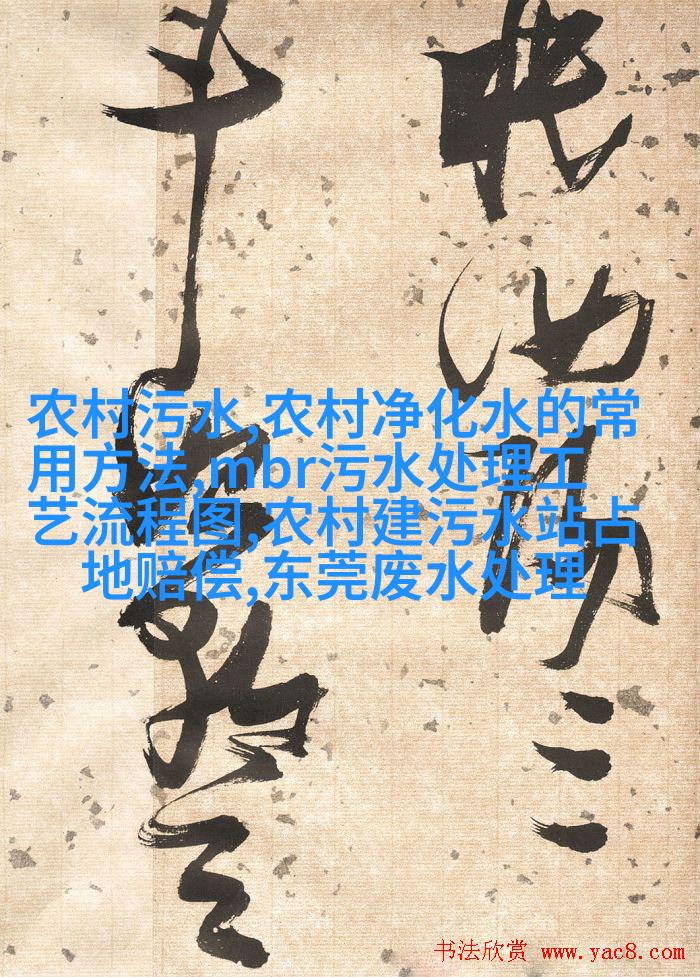 眠汝阳三
斗始朝天
农村污水,农村净化水的常
用方法,mbr污水处理工
艺流程图,农村建污水站占
地赔偿,东莞废水处理
书法欣赏 www.yac8.com